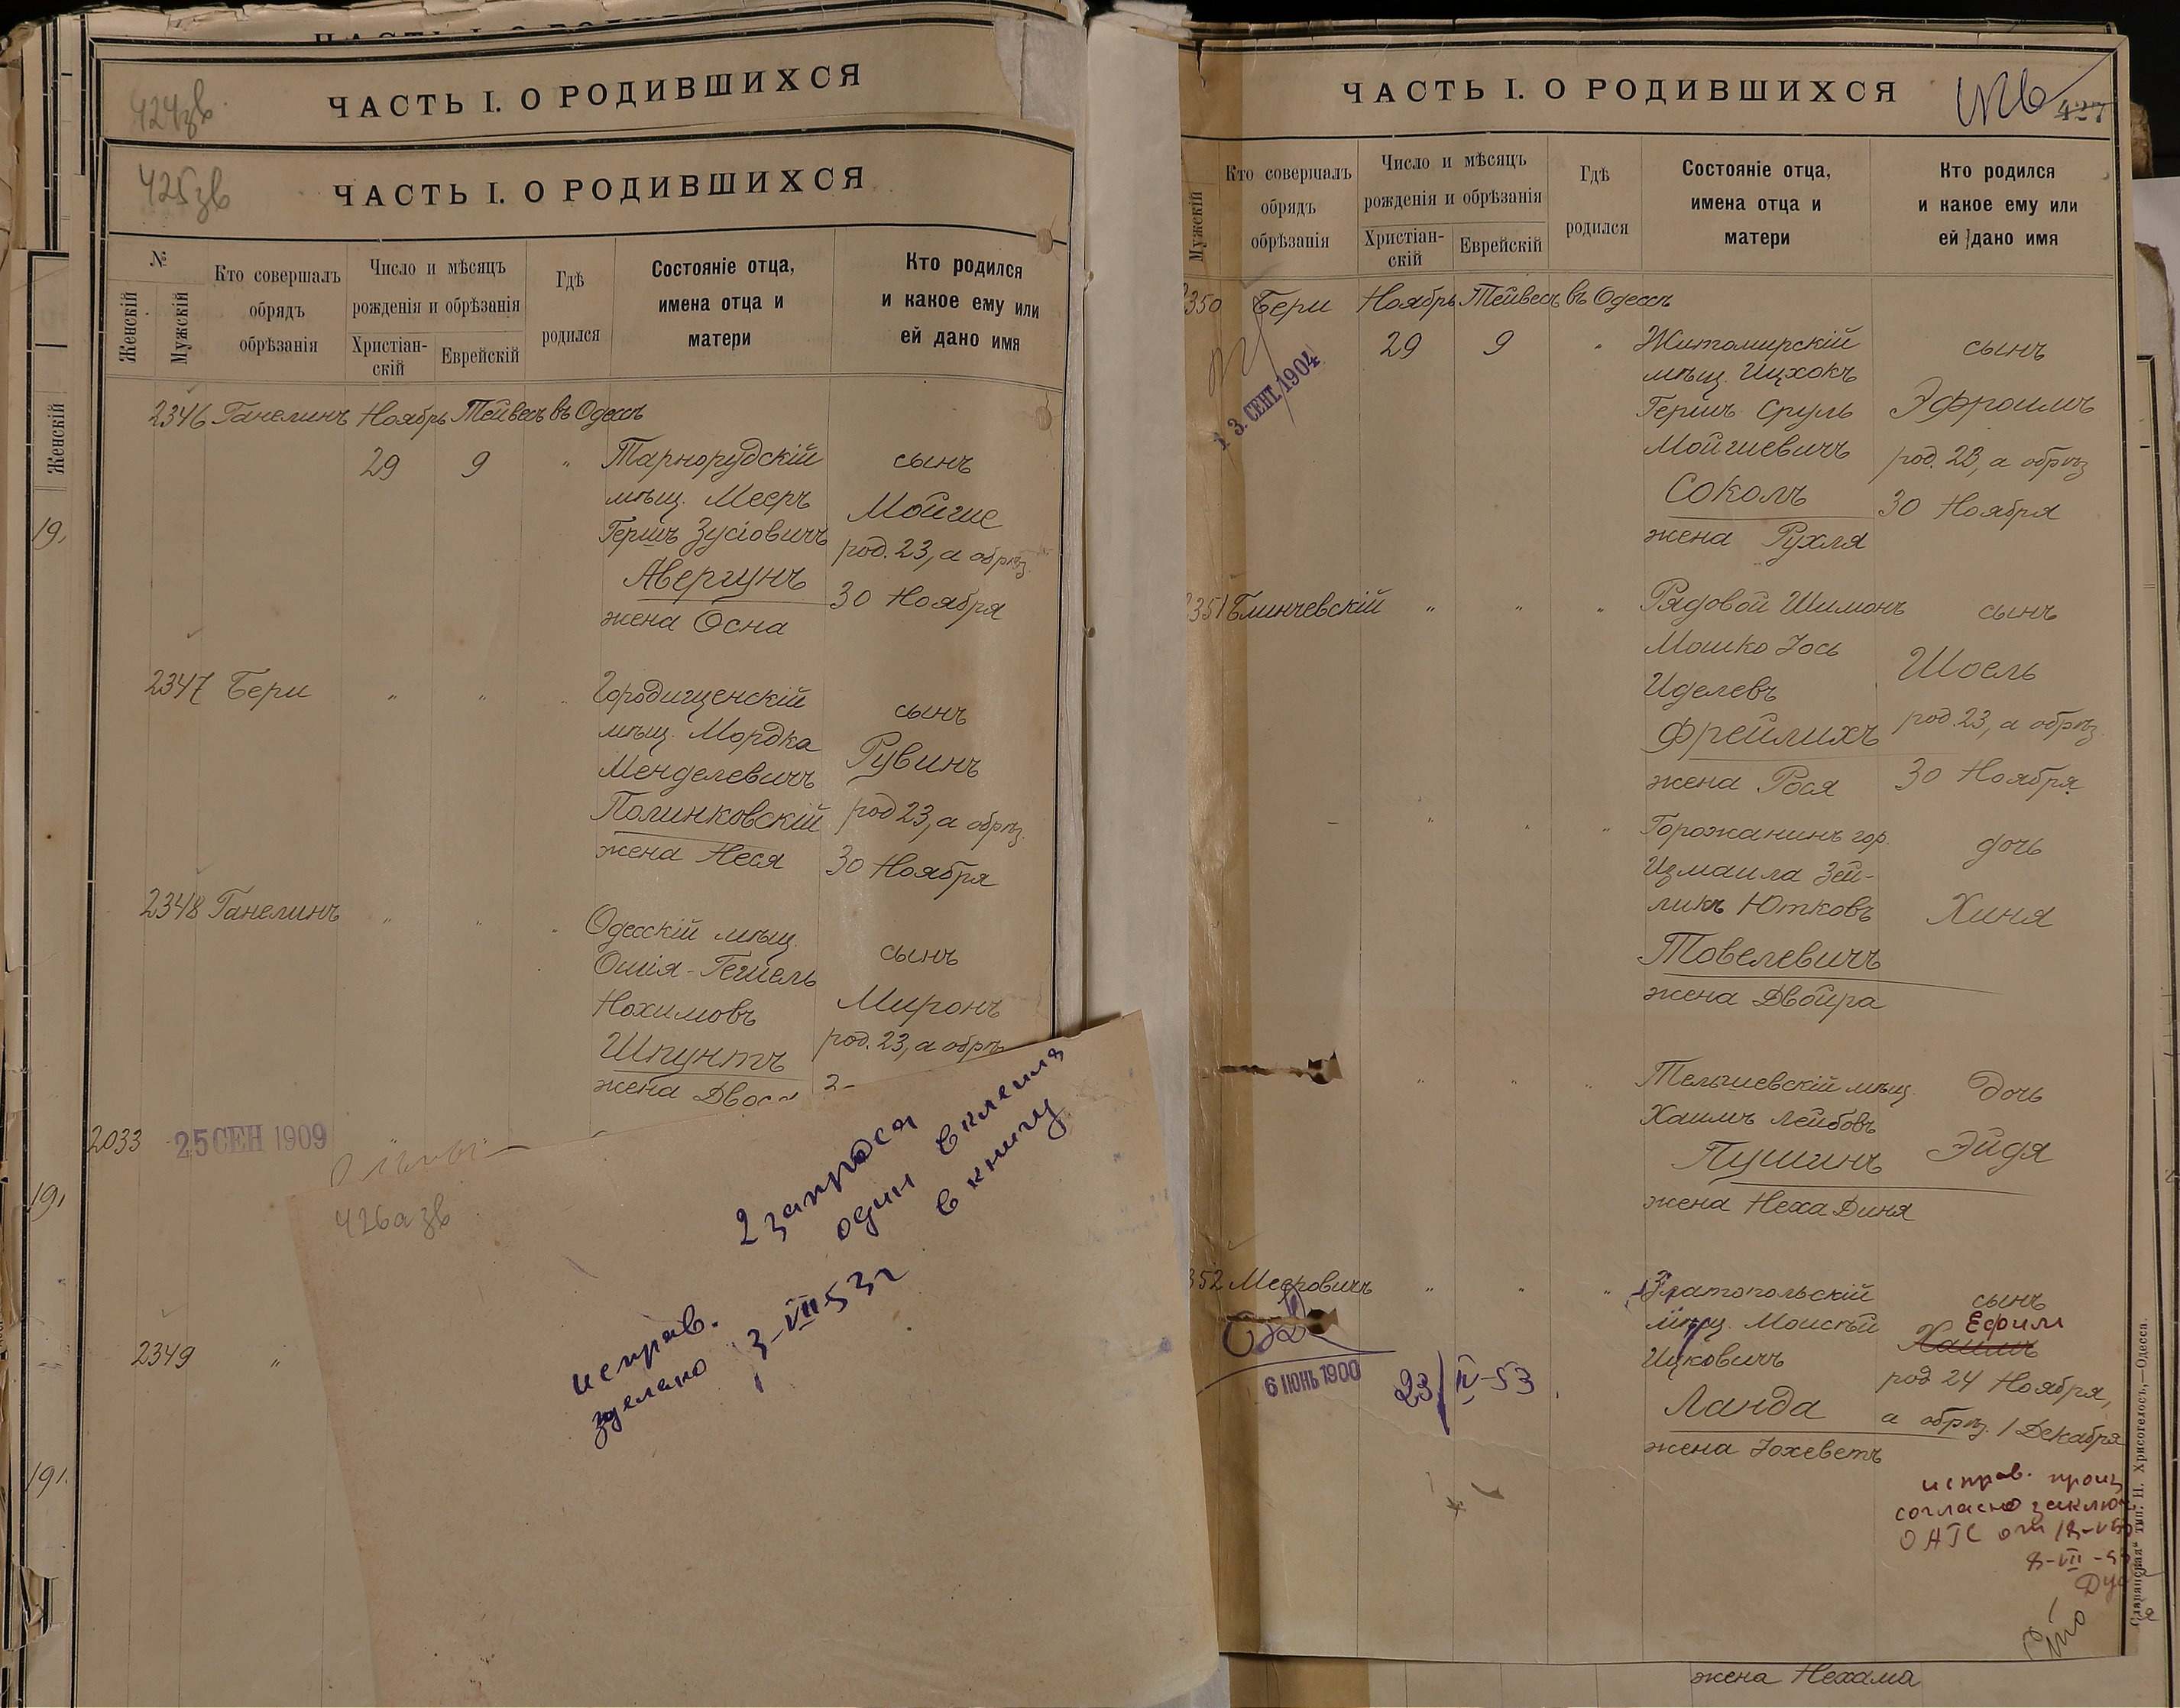 424зв
ЧАСТЬ I. О РОДИВШИХСЯ
425зв
ЧАСТЬ I. О РОДИВШИХСЯ
№
Женскій
Мужскій
Кто совершалъ
обрядъ
обрѣзанія
Число и мѣсяцъ
рожденія и обрѣзанія
Христіан-
скій
Еврейскій
Гдѣ
родился
Состояніе отца,
имена отца и
матери
Кто родился
и какое ему или
ей дано имя
Женскій
19,
2346 Ганелинъ Ноябрь Тейвесъ въ Одессѣ
29 9 „ Тарнорудскій сынъ
мѣщ. Мееръ Мойше
Гершъ Зусіовичъ род. 23, а обрѣз.
Авергунъ 30 Ноября
жена Осна
2347 Бери „ „ „ Городищенскій сынъ
мѣщ. Мордка Рувинъ
Менделевичъ
Полинковскій род 23, а обрѣз.
жена Неся 30 Ноября
2348 Ганелинъ „ „ „ Одесскій мѣщ. сынъ
Ошія-Гешель
Нохимовъ Миронъ
Шпунтъ род. 23, а обрѣ
жена Двося
2033 25 СЕН 1909
191
426а зв
2 запроса
один вклеили
в книгу
исправ.
зделано 3-VII-53г
2349 „
191.
ЧАСТЬ I. О РОДИВШИХСЯ
427
Мужскій
Кто совершалъ
обрядъ
обрѣзанія
Число и мѣсяцъ
рожденія и обрѣзанія
Христіан-
скій
Еврейскій
Гдѣ
родился
Состояніе отца,
имена отца и
матери
Кто родился
и какое ему или
ей дано имя
350 Бери Ноябрь Тейвесъ въ Одессѣ
29 9 „ Житомирскій сынъ
мѣщ. Ицхокъ
Гершъ Сруль Эфроимъ
Мойшевичъ род. 23, а обрѣз
Соколъ 30 Ноября
жена Рухля
13. СЕНТ. 1904
351 Блинчевскій „ „ „ Рядовой Шимонъ сынъ
Мошко Іось Шоель
Иделевъ
Фрейлихъ род. 23, а обрѣз.
жена Рося 30 Ноября
– „ „ „ Горожанинъ гор. дочь
Измаила Зей-
ликъ Ютковъ Хиня
Товелевичъ
жена Двойра
„ „ „ Тельшевскій мѣщ. Дочь
Хаимъ Лейбовъ
Пушинъ Эйдя
жена Неха Диня
352 Мееровичъ „ „ „ Златопольскій сынъ
мѣщ. Моисѣй Ефим
Ицковичъ Хаимъ
Ланда род 24 Ноября,
а обрѣз. 1 Декабря
жена Іохеветъ
6 ІЮНЬ 1900
23/IV-53
исправ. произ
согласно заклю
8-VII-5
Славянская" тип. Н. Хрисогелосъ,—Одесса.
жена Нехама